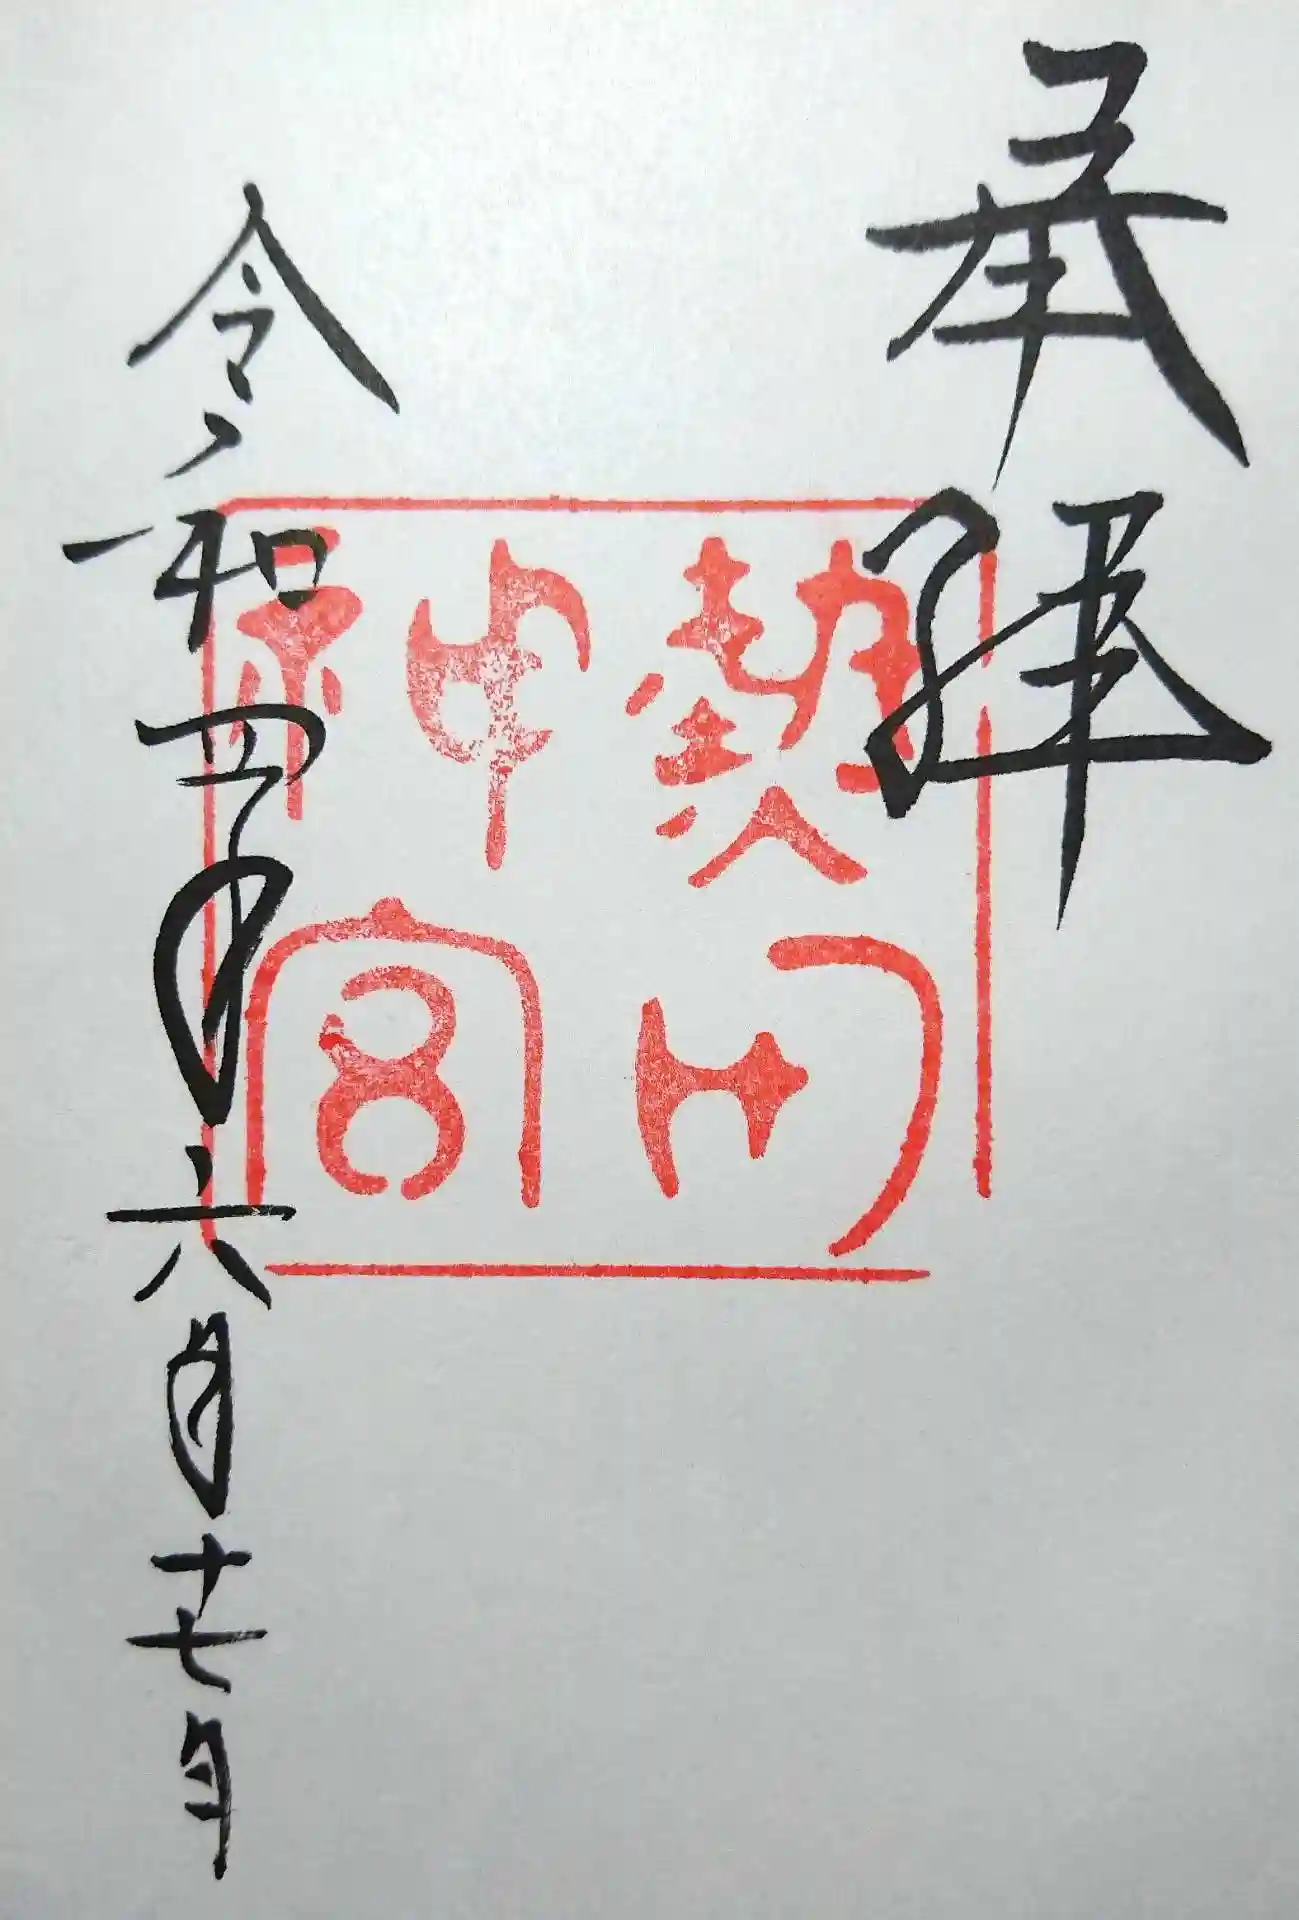 奉拝
熱田
神宮
令和四年六月十七日